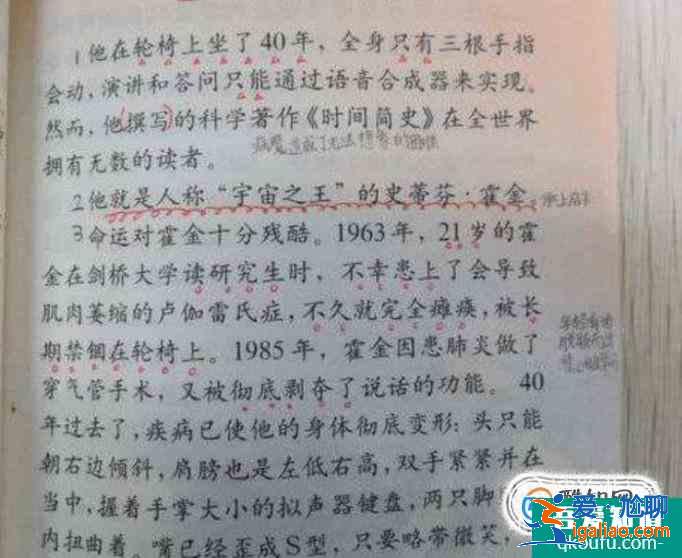 1他在轮椅上坐了40年，全身只有三根手指
会动，演讲和答问只能通过语音合成器来实现。
然而，他(撰写)的科学著作《时间简史》在全世界
病魔造成了无法想象的困难
拥有无数的读者。
2他就是人称“宇宙之王”的史蒂芬·霍金。
承上启下
3命运对霍金十分残酷。1963年，21岁的霍
金在剑桥大学读研究生时，不幸患上了会导致
肌肉萎缩的卢伽雷氏症，不久就完全瘫痪，被长
期禁锢在轮椅上。1985年，霍金因患肺炎做了
穿气管手术，又被彻底剥夺了说话的功能。40
年过去了，疾病已使他的身体彻底变形：头只能
朝右边倾斜，肩膀也是左低右高，双手紧紧并在
当中，握着手掌大小的拟声器键盘，两只脚
内扭曲着，嘴已经歪成S型，只要略带微笑，
爱尬聊
www.iqgaliao.com